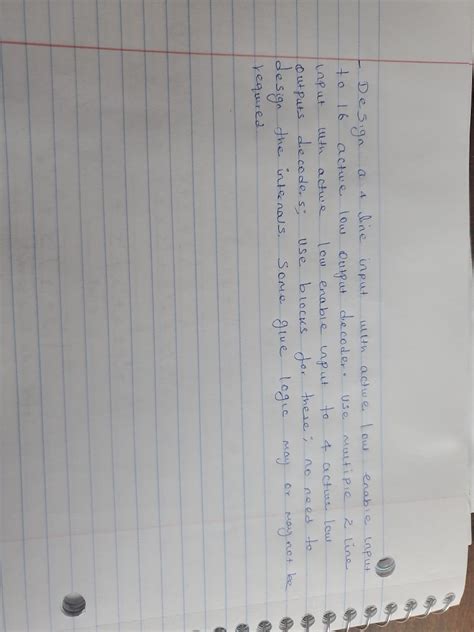 - Design a 4 line input with active low enable input
to 16 active low output decoder. Use multiple 2 line
input with active low enable input to 4 active low
outputs decoders; Use blocks for these; no need to
design the internals. Some glue logic may or may not be
required